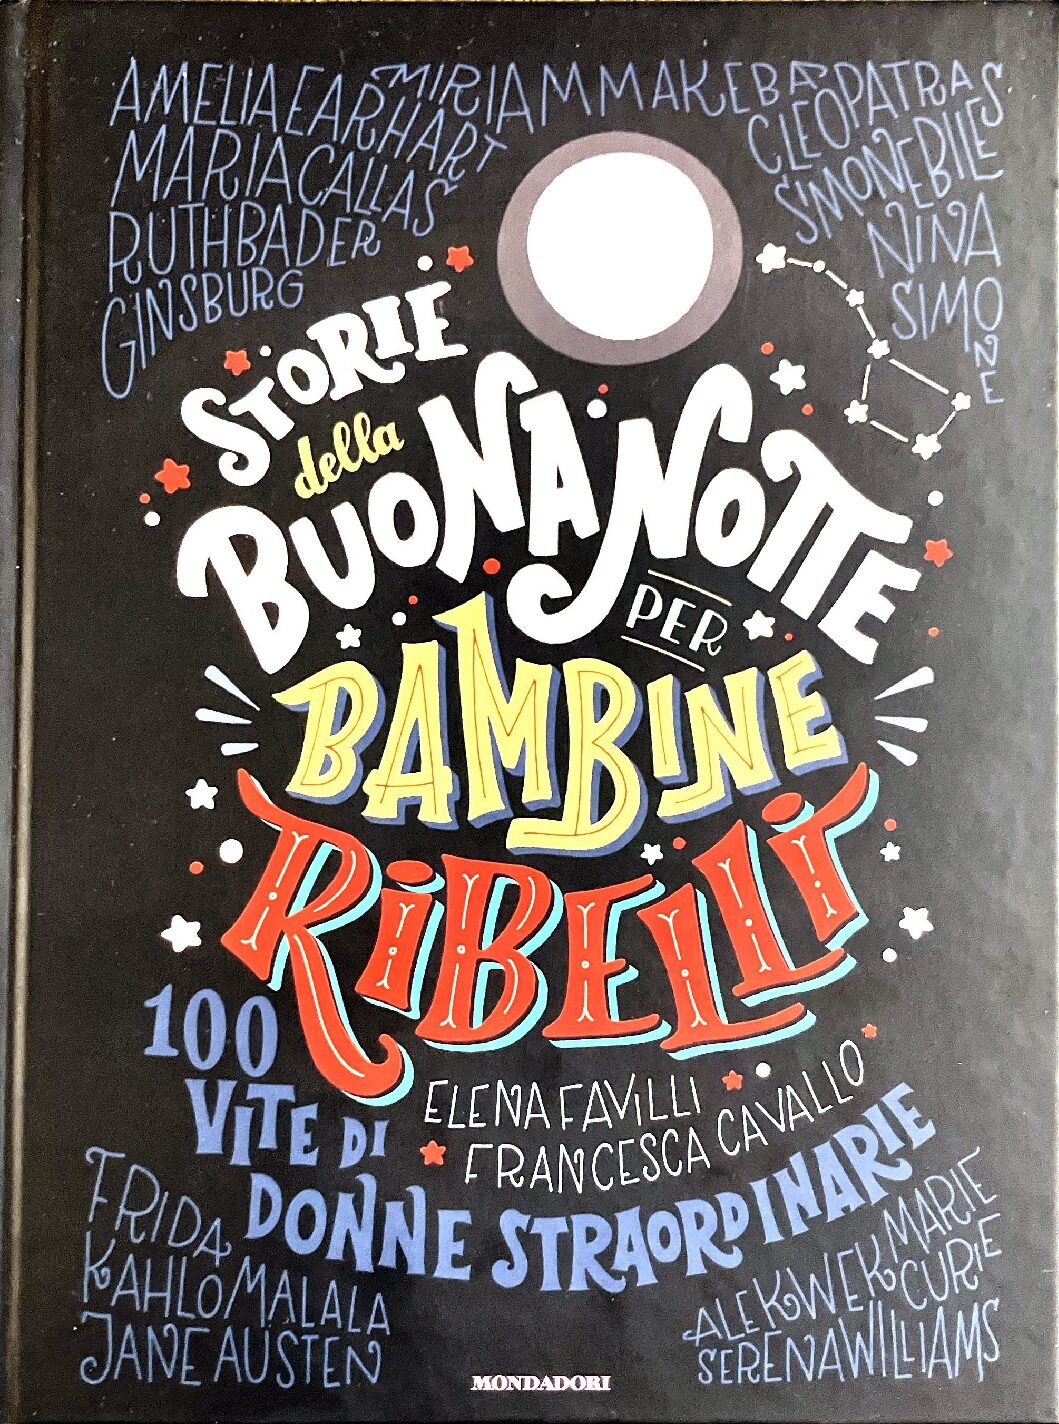 AMELIA EARHART
MIRIAM MAKEBA
CLEOPATRA
MARIA CALLAS
SIMONE BILES
RUTH BADER
GINSBURG
NINA
SIMONE
STORIE
della
BUONANOTTE
PER
BAMBINE
RIBELLI
100
VITE DI
DONNE STRAORDINARIE
ELENA FAVILLI
FRANCESCA CAVALLO
FRIDA
KAHLO MALALA
JANE AUSTEN
MARIE
CURIE
ALEK WEK
SERENA WILLIAMS
MONDADORI